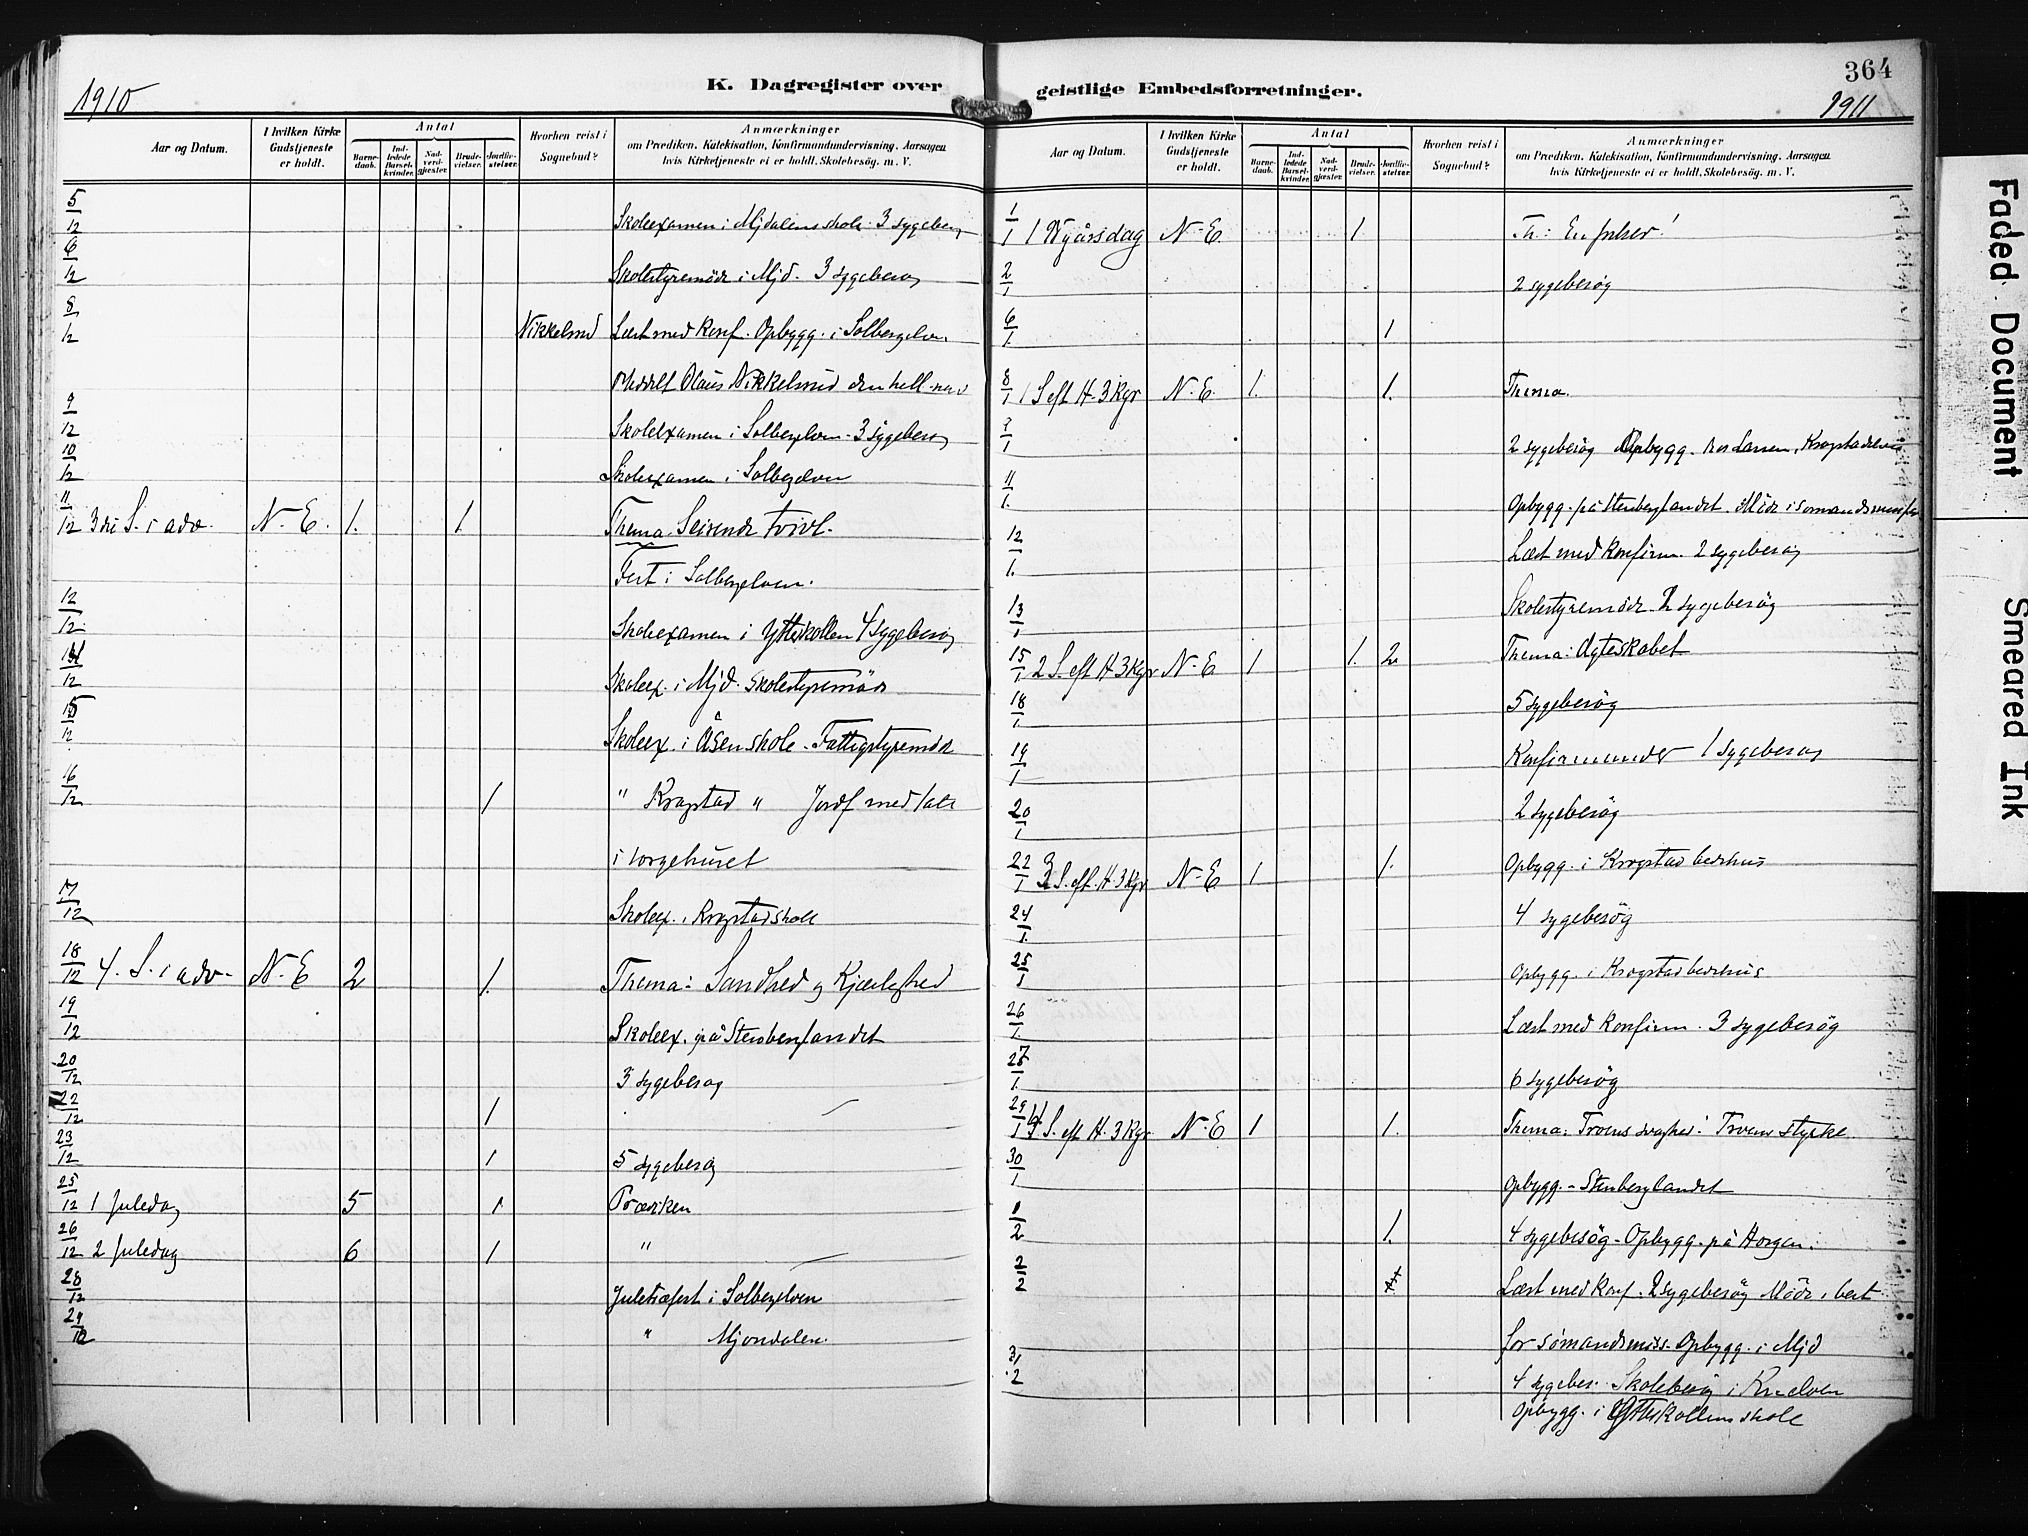 1910
K. Dagregister over
Aar og Datum.
I hvilken Kirke Gudstjeneste er holdt.
Antal
Barnedaab.
Indledede Barselkvinder.
Nadverdgjæster.
Brudevielser.
Jordfæstelser.
Hvorhen reist i Sognebud?
Anmærkninger
om Prædiken, Katekisation, Konfirmandundervisning, Aarsagen
hvis Kirketjeneste ei er holdt, Skolebesøg. m. V.
5/12 Skoleexamen i Mjdalens skole 3 sygebesøg
6/12 Skolestyremöde i Mjd. 3 sygebesøg
8/12 Nikkelsrud Læst med Konf. Opbygg. i Solbergelven
Meddelt Olaus Nikkelsrud den hell. nad
9/12 Skoleexamen i Solbergelven. 3 sygebesøg
10/12 Skoleexamen i Solbergelven
11/12 3die S. i adv. N. E. 1. 1. Thema Seirende tvivl.
Fest i Solbergelven.
12/12 Skoleexamen i Ytterkollen 4 sygebesøg
14/12 Skoleex. i Mjd. Skolestyremöde
15/12 Skoleex. i Åsen skole. Fattigstyremöde
16/12 1 " Krogstad " Jordf med tale
i sorgehuset
17/12 Skoleex. i Krogstad skole
18/12 4. S. i adv. N. E 2 1. Thema: Sandhed og Kjærlighed
19/12 Skoleex. på Stenberglandet
20/12 3 sygebesøg
22/12 1
23/12 1 5 sygebesøg
25/12 1 juledag 5 1 Prædiken
26/12 2 juledag 6 1 "
28/12 Juletræfest i Solbergelven
29/12 " Mjøndalen.
geistlige Embedsforretninger.
364
1911
Aar og Datum.
I hvilken Kirke Gudstjeneste er holdt.
Antal
Barnedaab.
Indledede Barselkvinder.
Nadverdgjæster.
Brudevielser.
Jordfæstelser.
Hvorhen reist i Sognebud?
Anmærkninger
om Prædiken, Katekisation, Konfirmandundervisning, Aarsagen
hvis Kirketjeneste ei er holdt, Skolebesøg. m. V.
1/1 Nyårsdag N-E 1 Th: En frelser!
2/1 2 sygebesøg
6/1 1
8/1 1 S eft H. 3 Kgr N-E. 1. 1. Thema.
2 sygebesøg Opbygg. hos Larsen, Krogstadelven
11/1. Opbygg. på Stenberglandet. Möde i
12/1. Læst med Konfirm. 2 sygebesøg
13/1 Skolestyremöde. 2 sygebesøg
15/1 2 S. eft H. 3 Kgr N-E 1 1. 2 Thema: Ægteskabet
18/1. 5 sygebesøg
19/1 Konfirmander 1 sygebesøg
20/1 2 sygebesøg
22/1 3 S. eft. H. 3 Kgr N-E 1 1. Opbygg. i Krogstad bedehus
24/1. 4 sygebesøg
25/1 Opbygg. i Krogstad bedehus
26/1. Læst med Konfirm. 3 sygebesøg
27/1. 6 sygebesøg
29/1 4 S. eft H. 3 Kgr N-E 1 1. Thema: Troens svaghed. Troens styrke.
30/1 Opbygg. - Stenberglandet
1/2 1. 4 sygebesøg - Opbygg. på Horgen.
2/2 Læst med Konf. 2 sygebesøg Möde i best
for sømandsmiss. Opbygg. i Mjd
3/2 4 sygebes. Skolebesøg i Kr.elven
Opbygg. i Ytterkollens skole
Faded Document
Smeared Ink